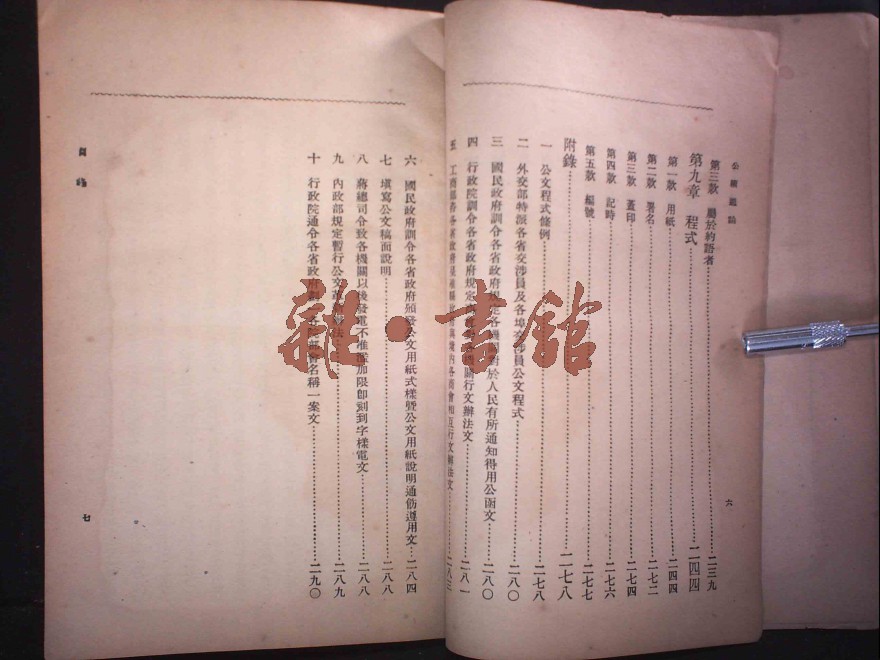 公
六
第三款　屬於約語者……二三九
第九章　程式……二四四
第一款　用紙……二四四
第二款　署名……二七二
第三款　蓋印……二七四
第四款　記時……二七六
第五款　編號……二七七
附錄……二七八
一　公文程式條例……二七八
二　外交部特派各省交涉員及各埠交涉員公文程式……二八〇
三　國民政府訓令各省政府規定各機關對於人民有所通知得用公函文……二八〇
四　行政院訓令各省政府規定行文辦法文……二八一
五　工商部各省政府內各商會相互行文辦法文……二八三
六　國民政府訓令各省政府頒發公文用紙式樣暨公文用紙說明通飭遵用文……二八四
七　填寫公文稿面說明……二八八
八　蔣總司令致各機關以後發電不准濫加限即刻到字樣電文……二八八
九　內政部規定暫行公文辦法……二八九
十　行政院通令各省政府名稱一案文……二九〇
目錄
七
雜·書館